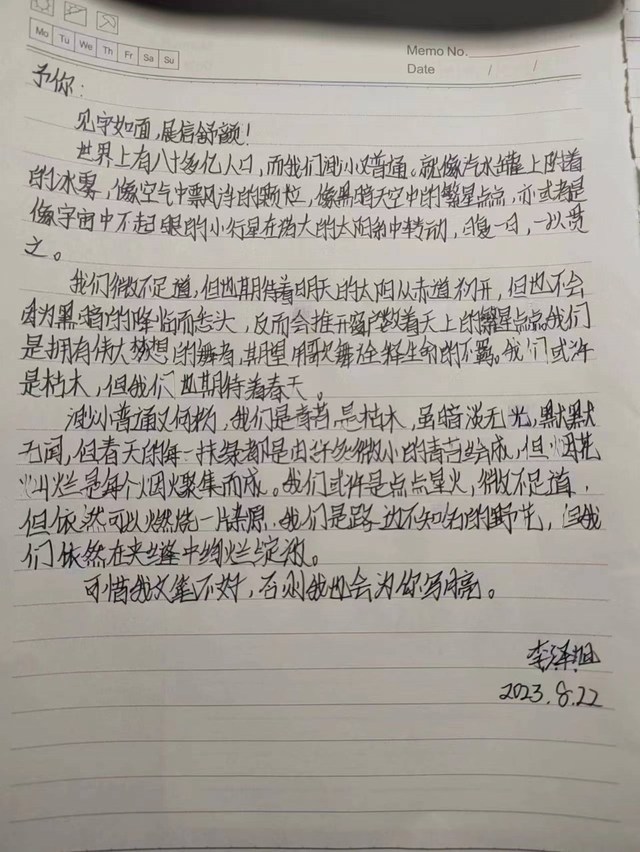 Mo Tu We Th Fr Sa Su
Memo No.
Date / /
予你:
见字如面,展信舒颜!
世界上有八十多亿人口,而我们渺小又普通。就像汽水罐上附着
的冰雾,像空气中飘浮的颗粒,像黑暗天空中的繁星点点,亦或者是
像宇宙中不起眼的小行星在浩大的太阳系中转动,日复一日,一以贯
之。
我们微不足道,但也期待着明天的太阳从赤道初开,但也不会
因为黑暗的降临而垂头,反而会推开窗户数着天上的繁星点点。我们
是拥有伟大梦想的舞者,期望用歌舞诠释生命的不羁。我们或许
是枯木,但我们也期待着春天。
渺小普通又何妨,我们是青苔,是枯木,虽暗淡无光,默默
无闻,但春天的每一抹绿都是由许许微小的青苔绘成,但烟花
灿烂是每个烟火聚集而成。我们或许是点点星火,微不足道,
但依然可以燃烧一片草原,我们是路边不知名的野花,但我
们依然在夹缝中绚烂绽放。
可惜我文笔不好,否则我也会为你写月亮。
李泽旭
2023.8.22